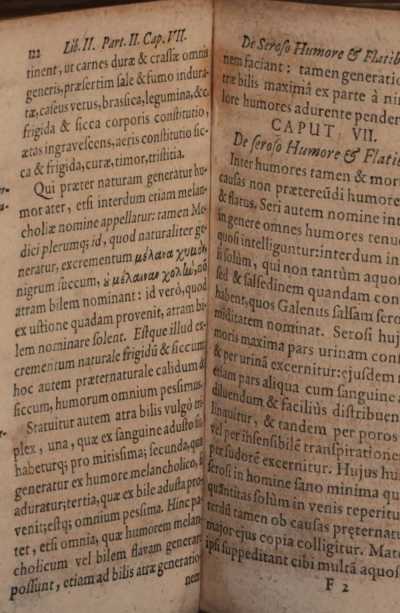 122 Lib. II. Part. II. Cap. VII.
tinent, ut carnes duræ & crassæ omnis
generis, præsertim sale & fumo indura-
tæ, caseus vetus, brassica, legumina, &c.
frigida & sicca corporis constitutio,
ætas ingravescens, aeris constitutio sic-
ca & frigida, curæ, timor, tristitia.
Qui præter naturam generatur hu-
mor ater, etsi interdum etiam melan-
choliæ nomine appellatur: tamen Me-
dici plerumq; id, quod naturaliter ge-
neratur, excrementum μέλαινα χυμὸν,
nigrum succum, ὀ μέλαιναν χολὴν, nō
atram bilem nominant: id verò, quod
ex ustione quadam provenit, atram bi-
lem nominare solent. Estque illud ex-
crementum naturale frigidū & siccum
hoc autem præternaturale calidum &
siccum, humorum omnium pessimus.
Statuitur autem atra bilis vulgò tri-
plex, una, quæ ex sanguine adusto fit
habeturq; pro mitissima; secunda, quæ
generatur ex humore melancholico, si
aduratur; tertia, quæ ex bile adusta pro-
venit; estq; omnium pessima. Hinc pa-
tet, etsi omnia, quæ humorem melan-
cholicum vel bilem flavam generare
possunt, etiam ad bilis atræ generatio-
nem
De Seroso Humore & Flatib
nem faciant: tamen generatio
træ bilis maximâ ex parte à ni
lore humores adurente pender
CAPUT VII.
De seroso Humore & Flatib
Inter humores tamen & mor
causas non prætereūdi humore
& flatus. Seri autem nomine int
in genere omnes humores tenue
quosi intelliguntur: interdum in
is solùm, qui non tantùm aquos
sed & salsedinem quandam con
habent, quos Galenus salsam sero
miditatem nominat. Serosi huj
moris maxima pars urinam conf
& per urinā excernitur: ejusdem r
etiam pars aliqua cum sanguine a
diluendum & faciliùs distribuen
linquitur, & tandem per poros
vel per insensibilē transpiratione
per sudorē excernitur. Hujus hu
serosi in homine sano minima qu
quantitas solùm in venis reperitur
terdū tamen ob causas præternatur
major ejus copia colligitur. Mate
ipsi suppeditant cibi multâ aquos
F 2